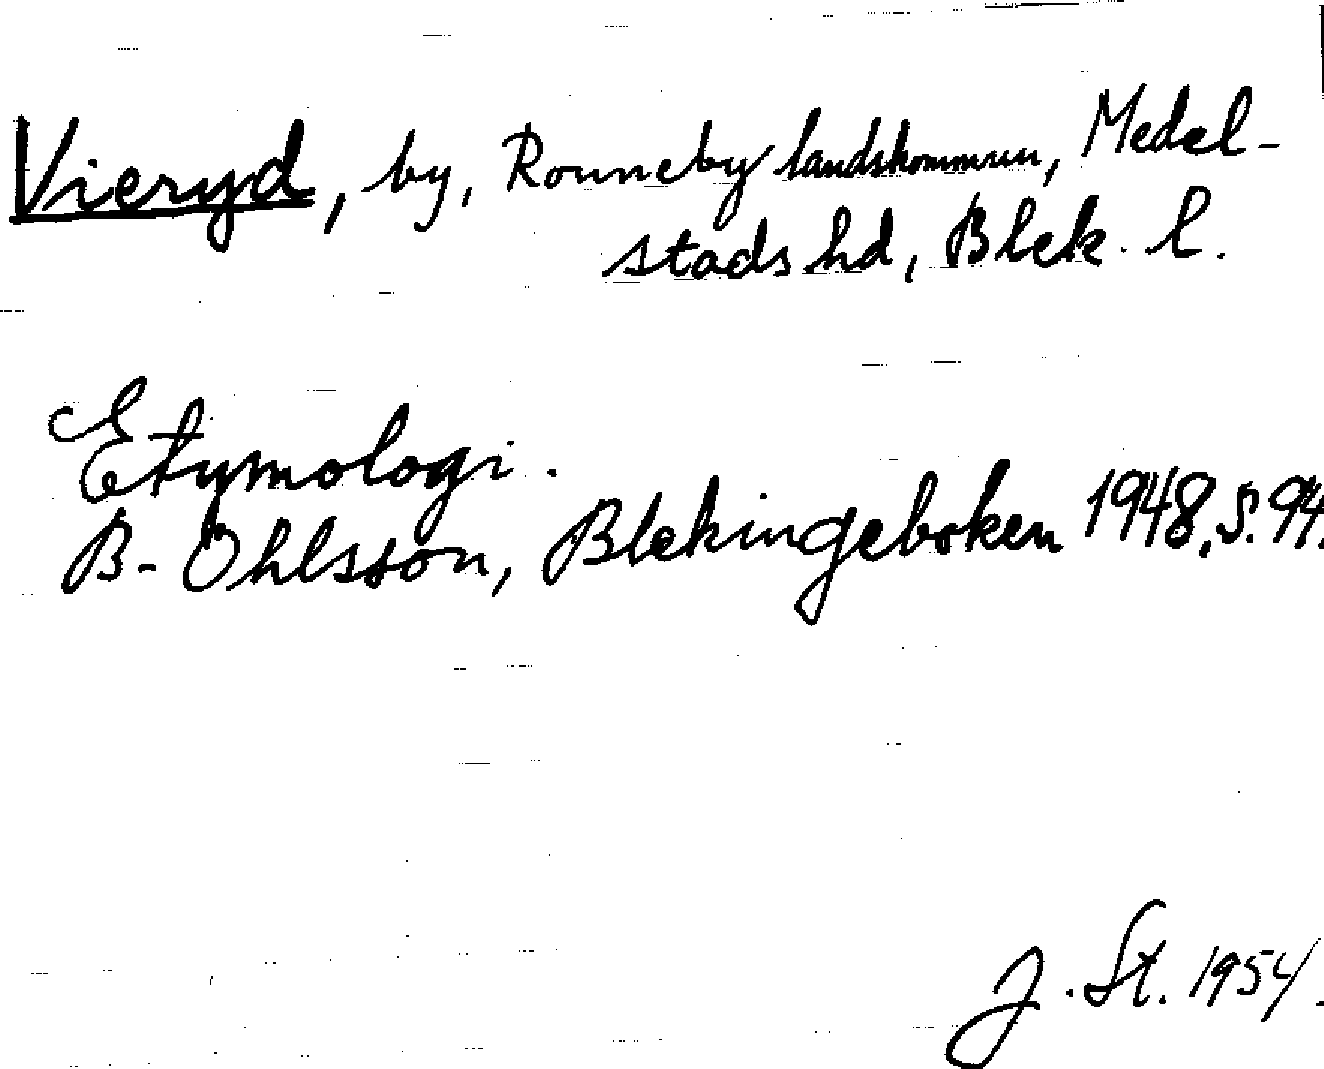 Vieryd, by, Ronneby landskommun, Medel-
stads hd, Blek. l.
Etymologi.
B. Ohlsson, Blekingeboken 1948, s. 94.
J. St. 1954.